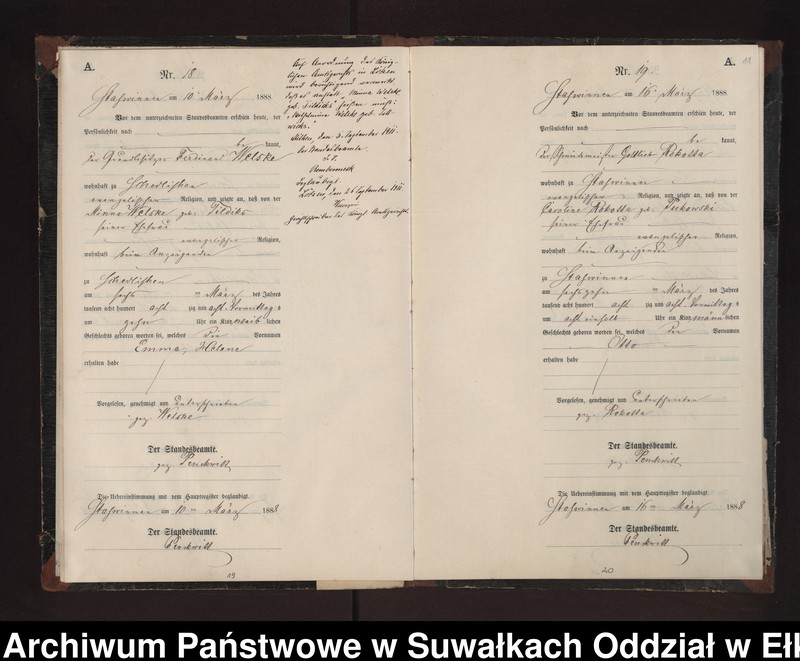 A.
Nr. 18.
Staßwinnen am 10. März 1888.
Vor dem unterzeichneten Standesbeamten erschien heute, der
Persönlichkeit nach
be kannt,
der Grundbesitzer Ferdinand Welske
wohnhaft zu Schedlisken
evangelischer Religion, und zeigte an, daß von der
Minna Welske geb.
seiner Ehefrau
evangelischer Religion,
wohnhaft beim Anzeigenden
zu Schedlisken
am sechs ten März des Jahres
tausend acht hundert acht zig und acht Vormittags
um zehn Uhr ein Kind weib lichen
Geschlechts geboren worden sei, welches die Vornamen
Emma, Helene
erhalten habe
Vorgelesen, genehmigt und unterschrieben
gez. Welske
Der Standesbeamte.
gez.
Die Uebereinstimmung mit dem Hauptregister beglaubigt.
Staßwinnen am 10ten März 1888
Der Standesbeamte.
19
Auf Anordnung des König-
lichen Amtsgerichts in Lötzen
wird berichtigend vermerkt
daß es anstatt Minna Welske
heißen muß:
Wilhelmine Welske geb.
den 3. September 1911.
Der Standesbeamte.
Lötzen, den 26 September 1911.
Gerichtsschreiber des Königl. Amtsgerichts.
A.
11
Nr. 19.
Staßwinnen am 16. März 1888.
Vor dem unterzeichneten Standesbeamten erschien heute, der
Persönlichkeit nach
be kannt,
Gottlieb Rokotta
wohnhaft zu Staßwinnen
evangelischer Religion, und zeigte an, daß von der
Caroline Rokotta geb.
seiner Ehefrau
evangelischer Religion,
wohnhaft beim Anzeigenden
zu Staßwinnen
am sechszehn ten März des Jahres
tausend acht hundert acht zig und acht Vormittags
um acht einhalb Uhr ein Kind männ lichen
Geschlechts geboren worden sei, welches den Vornamen
Otto
erhalten habe
Vorgelesen, genehmigt und unterschrieben
gez. Rokotta
Der Standesbeamte.
gez.
Die Uebereinstimmung mit dem Hauptregister beglaubigt.
Staßwinnen am 16ten März 1888
Der Standesbeamte.
20
Archiwum Państwowe w Suwałkach Oddział w Ełk